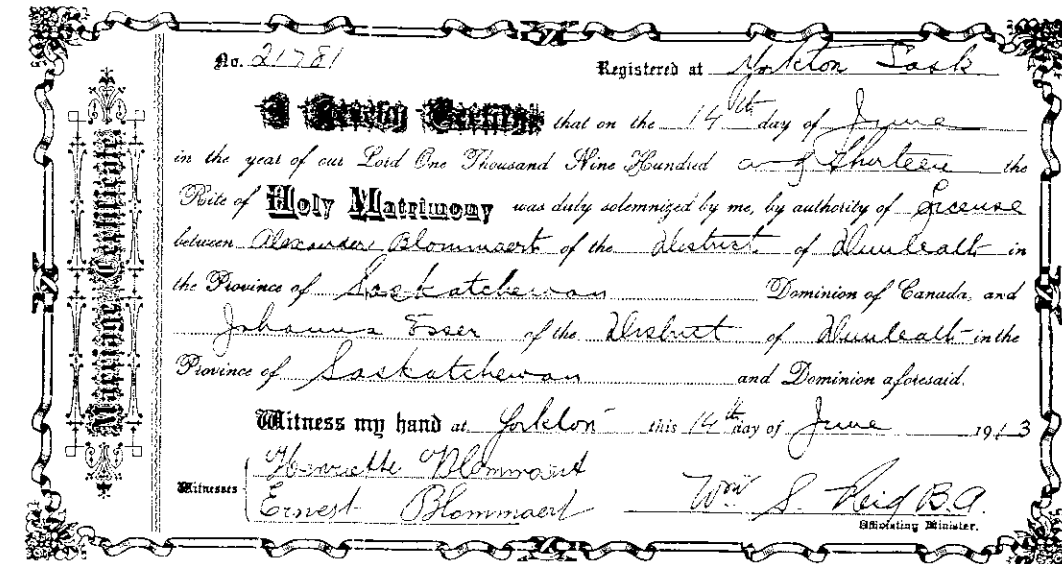 Marriage Certificate
No. 21781 Registered at Yorkton Sask
I Hereby Certify that on the 14th day of June
in the year of our Lord One Thousand Nine Hundred and Thirteen the
Rite of Holy Matrimony was duly solemnized by me, by authority of License
between Alexander Blommaert of the District of Dunleath in
the Province of Saskatchewan Dominion of Canada, and
Johanna Esser of the District of Dunleath in the
Province of Saskatchewan and Dominion aforesaid.
Witness my hand at Yorkton this 14th day of June 1913
Henriette Blommaert
Witnesses
Ernest Blommaert Wm S. Reid B.A.
Officiating Minister.